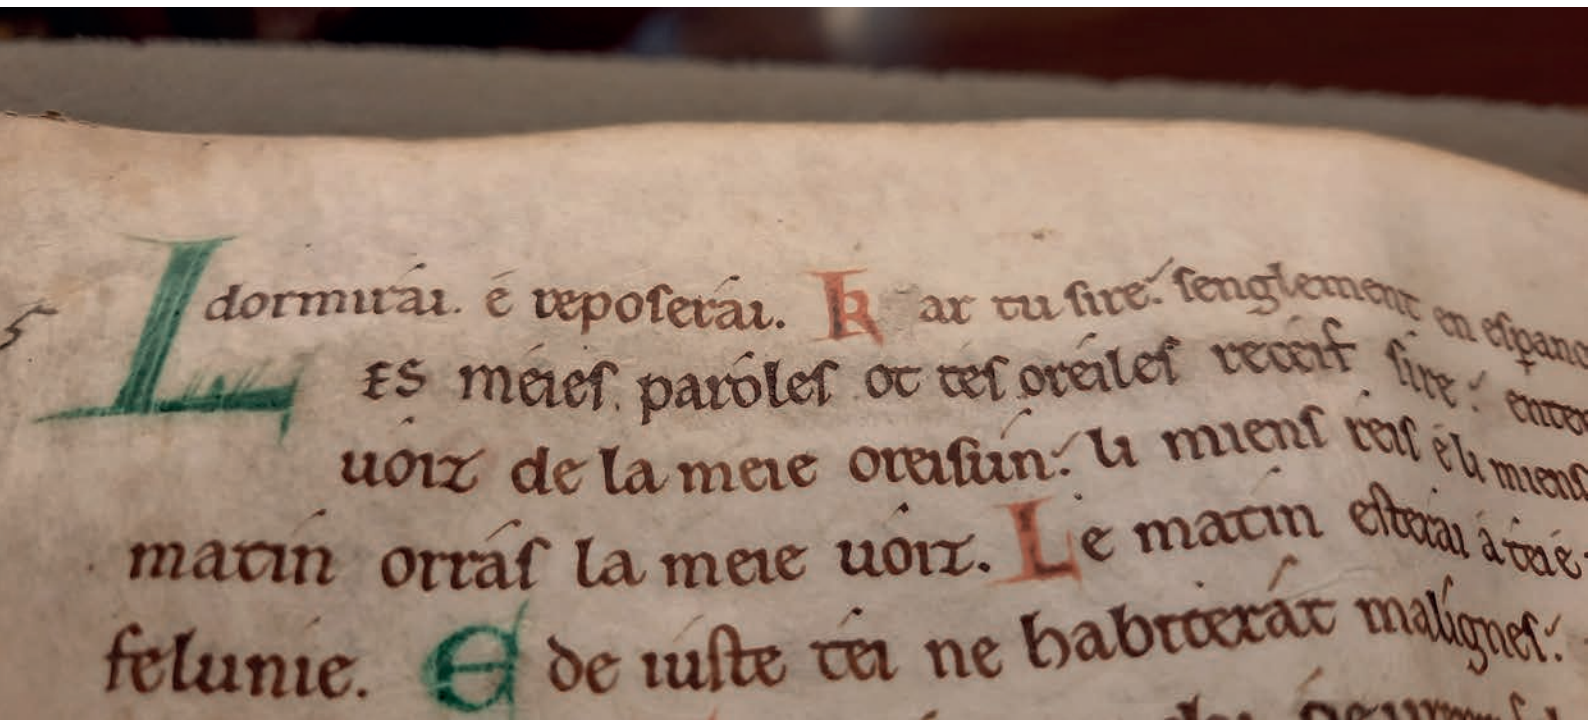 dormirái. é reposerái. Kar tu sire: senglement en
5 LES méies paróles ot tes oréiles receif sire:
uóiz de la meie oreisun: li miens réis é li miens
matín orrás la meie uóiz. Le matín esterai á téi é
felunie. E de iuste téi ne habiterát malígnes: